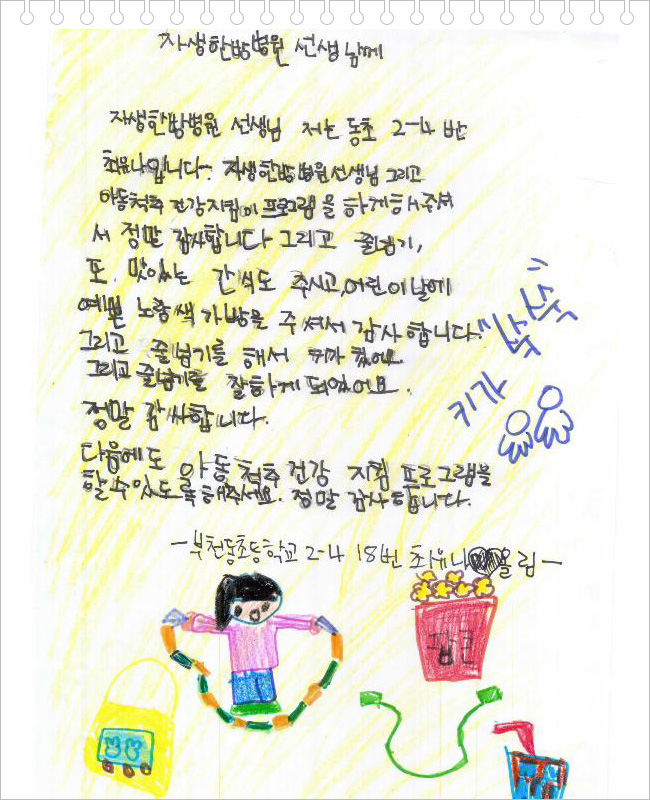 자생한방병원 선생님께
자생한방병원 선생님 저는 동초 2-4 반
최유나입니다. 자생한방병원선생님 그리고
아동척추 건강지킴이 프로그램을 하게해주셔
서 정말 감사합니다 그리고 줄넘기,
또, 맛있는 간식도 주시고,어린이날에
예쁜 노랑색 가방을 주셔서 감사합니다.
그리고 줄넘기를 해서 키가 컸어요.
그리고 줄넘기를 잘하게 되었어요.
정말 감싸합니다.
"쑥쑥"
키가
다음에도 아동척추건강 지킴 프로그램을
할수있도록해주세요. 정말 감사합니다.
-부천동초등학교 2-4 18번 최유나 올림-
팝콘